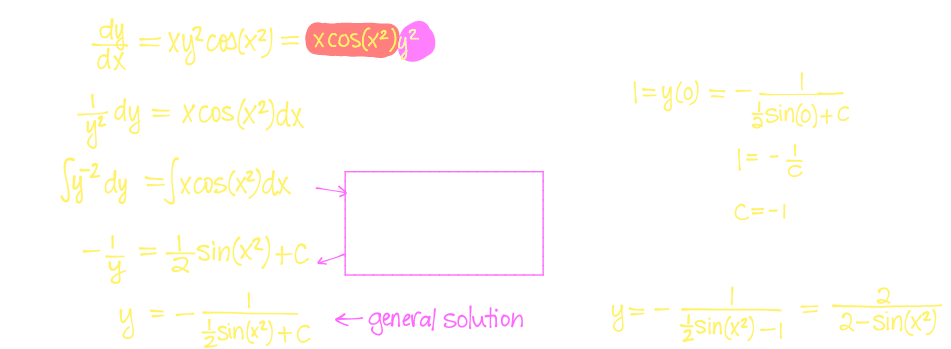 dy/dx = xy² cos(x²) = x cos(x²) y²
1/y² dy = x cos(x²) dx
∫y⁻² dy = ∫x cos(x²) dx
-1/y = 1/2 sin(x²) + C
y = - 1/(1/2 sin(x²) + C) ← general solution
1 = y(0) = - 1/(1/2 sin(0) + C)
1 = - 1/C
C = -1
y = - 1/(1/2 sin(x²) - 1) = 2/(2 - sin(x²))